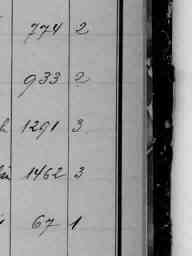 774 2
933 2
1291 3
1462 3
67 1